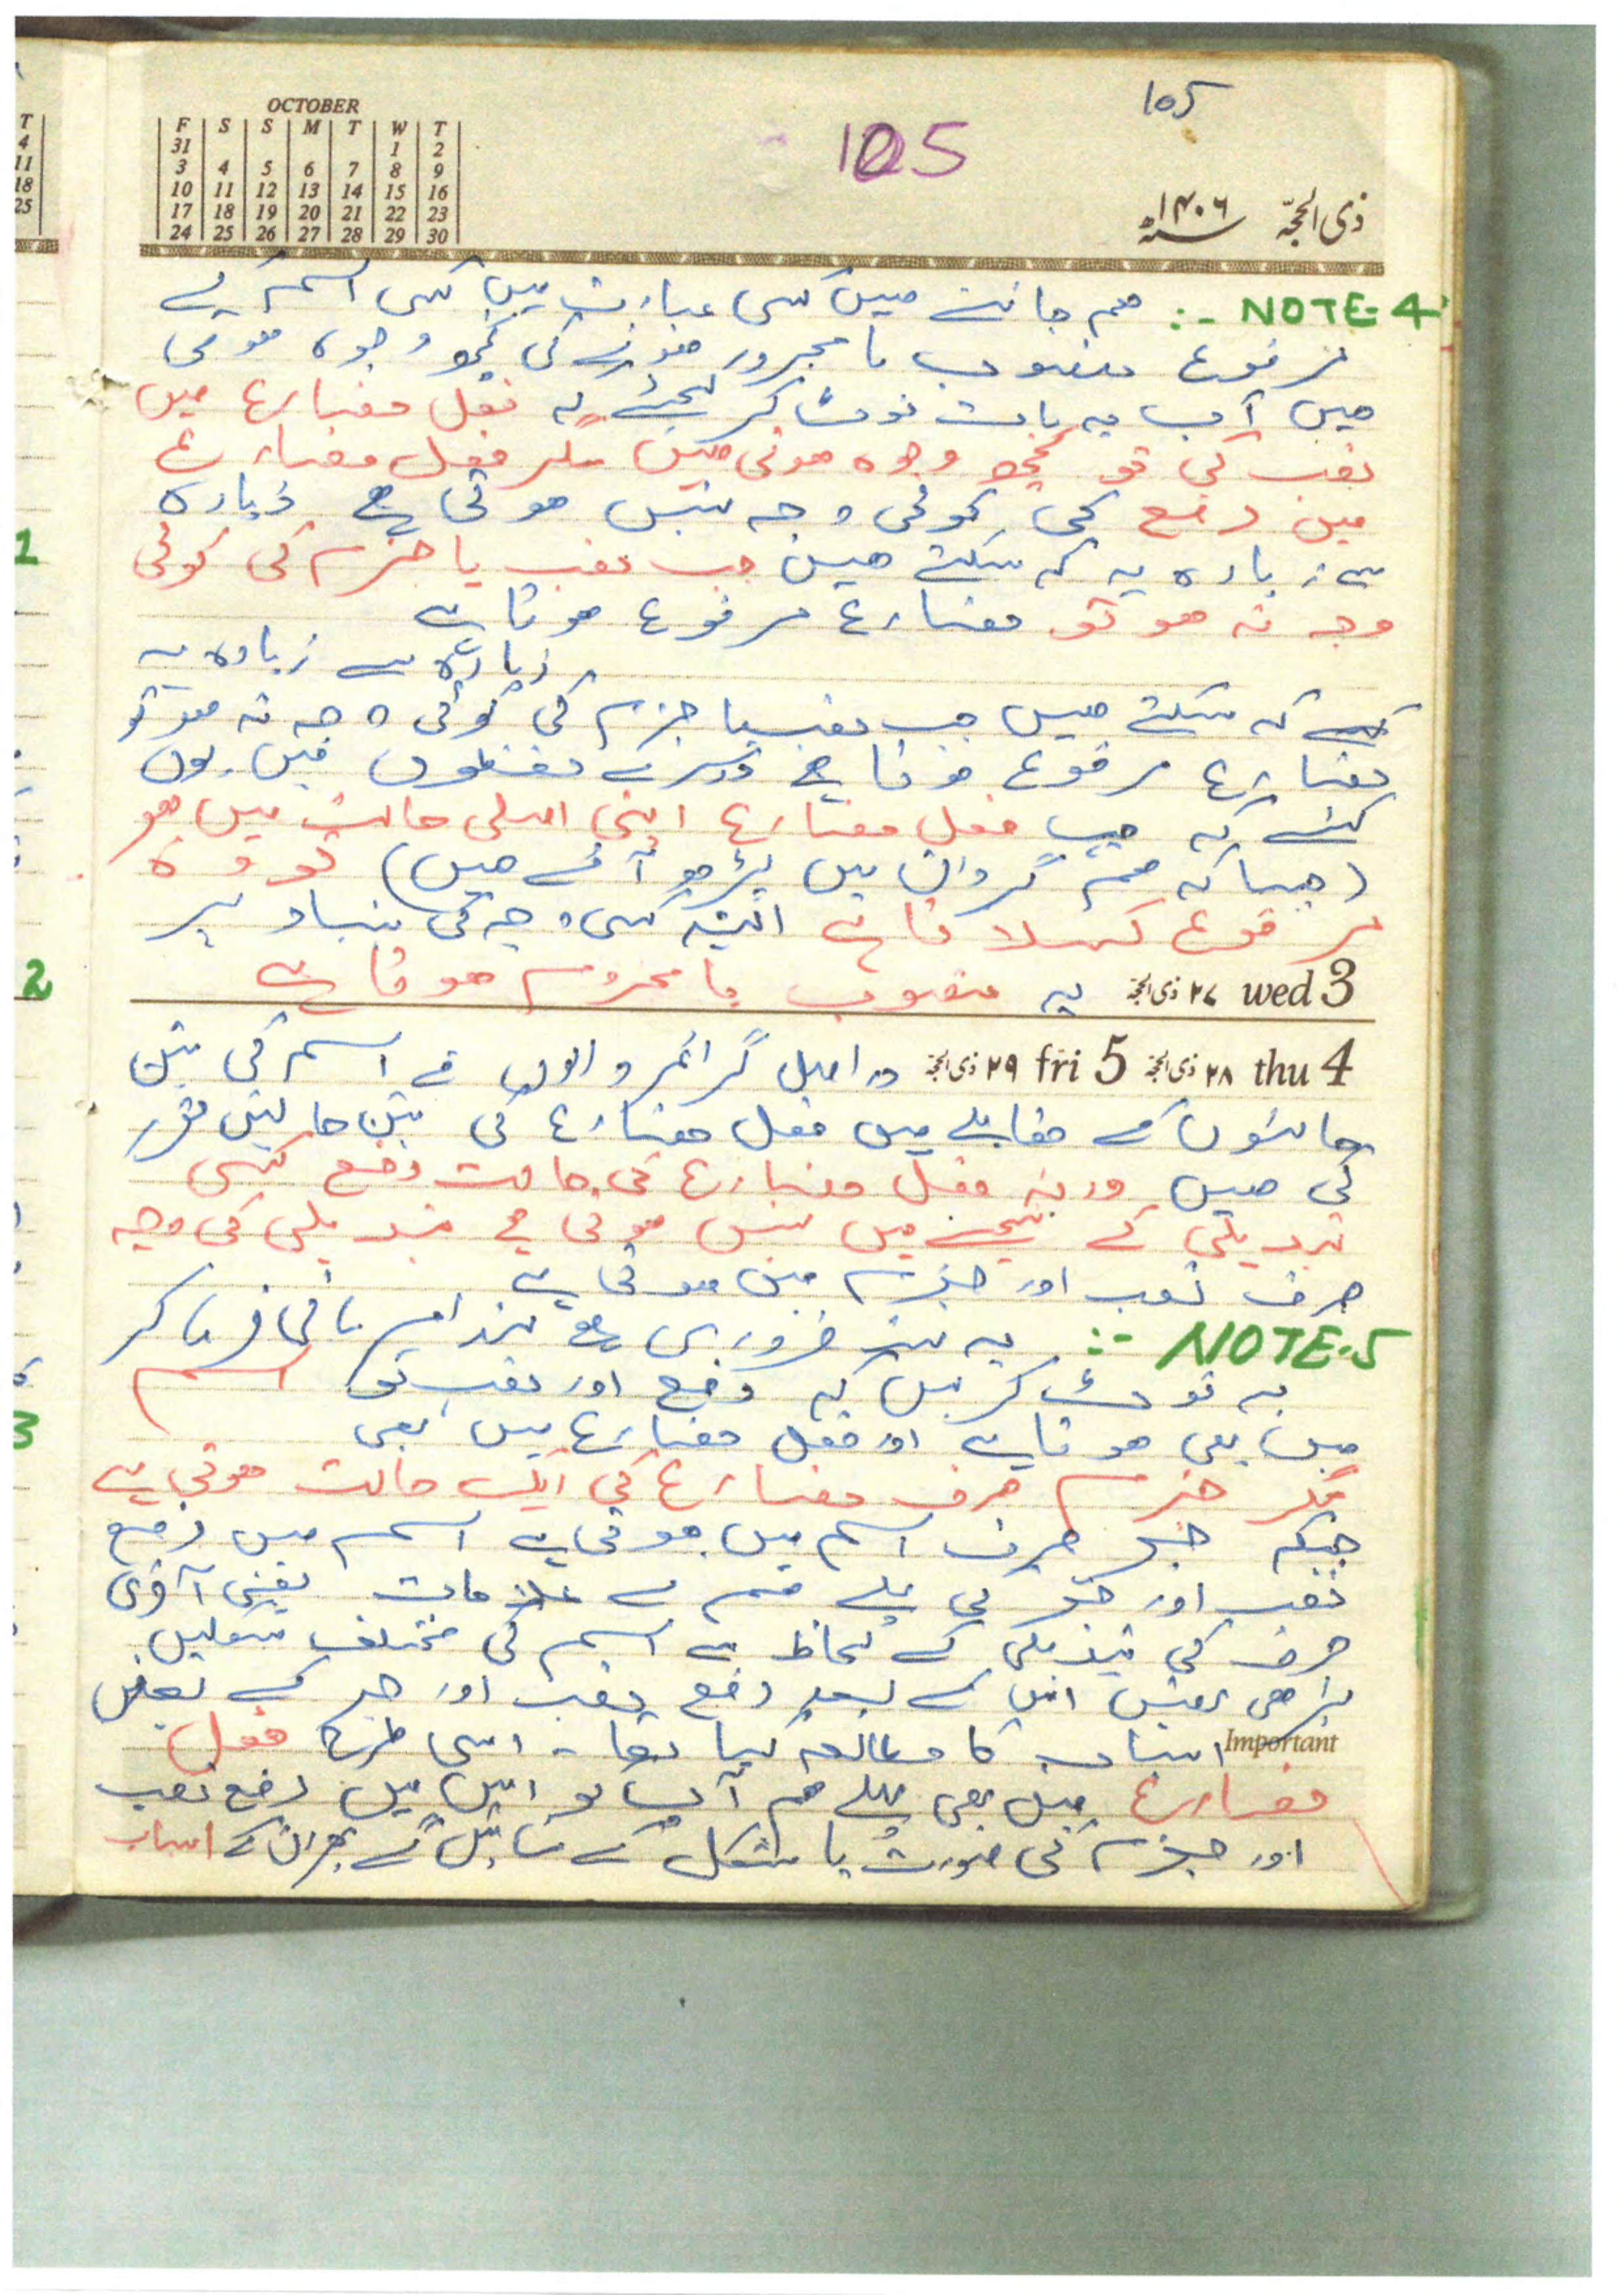 105
105
OCTOBER
F S S M T W T
31 1 2
3 4 5 6 7 8 9
10 11 12 13 14 15 16
17 18 19 20 21 22 23
24 25 26 27 28 29 30
ذی الحجّہ ۱۴۰۶ھ
NOTE-4 :- ھم جانتے ھیں کسی عبارت میں کسی اسم کے
مرفوع منصوب یا مجرور ھونے کی کچھ وجوہ ھوتی
ھیں آپ یہ بات نوٹ کر لیجئے کہ فعل مضارع میں
نصب کی تو کچھ وجوہ ھوتی ھیں مگر فعل مضارع
میں رفع کی کوئی وجہ نہیں ھوتی ہے زیادہ
سے زیادہ یہ کہ سکتے ھیں جب نصب یا جزم کی کوئی
وجہ نہ ھو تو مضارع مرفوع ھوتا ہے
زیادہ سے زیادہ یہ
کہ سکتے ھیں جب نصب یا جزم کی کوئی وجہ نہ ھو تو
مضارع مرفوع ھوتا ہے دوسرے لفظوں میں یوں
کہئے کہ جب فعل مضارع اپنی اصلی حالت میں ھو
(جیسا کہ ھم گردان میں پڑھ آئے ھیں) تو وہ
مرفوع کہلاتا ہے البتہ کسی وجہ کی بنیاد پر
wed 3 ۲۷ ذی الحجۃ یہ منصوب یا مجزوم ھوتا ہے
thu 4 ۲۸ ذی الحجۃ fri 5 ۲۹ ذی الحجۃ دراصل گرائمر والوں نے اسم کی تین
حالتوں کے مقابلے میں فعل مضارع کی تین حالتیں مقرر
کی ھیں ورنہ فعل مضارع کی حالت رفع کسی
تبدیلی کے نتیجے میں نہیں ھوتی ہے تبدیلی کی وجہ
صرف نصب اور جزم میں ھوتی ہے
NOTE-5 :- یہ ضروری ہے
یہ نوٹ کر لیں کہ رفع اور نصب تو اسم
میں بھی ھوتا ہے اور فعل مضارع میں بھی
مگر جزم صرف مضارع کی ایک حالت ھوتی ہے
جبکہ جر صرف اسم میں ھوتی ہے اسم میں رفع
نصب اور جر کی پہلے ھم نے علامات یعنی آخری
حرف کی تبدیلی کے لحاظ سے اسم کی مختلف شکلیں
پڑھی تھیں اس کے بعد رفع نصب اور جر کے بعض
Important اسباب کا مطالعہ کیا تھا - اسی طرح فعل
مضارع میں بھی پہلے ھم آپ کو اس میں رفع نصب
اور جزم کی صورت یا شکل کے بتائیں گے پھر ان کے اسباب
T
4
11
18
25
1
2
3